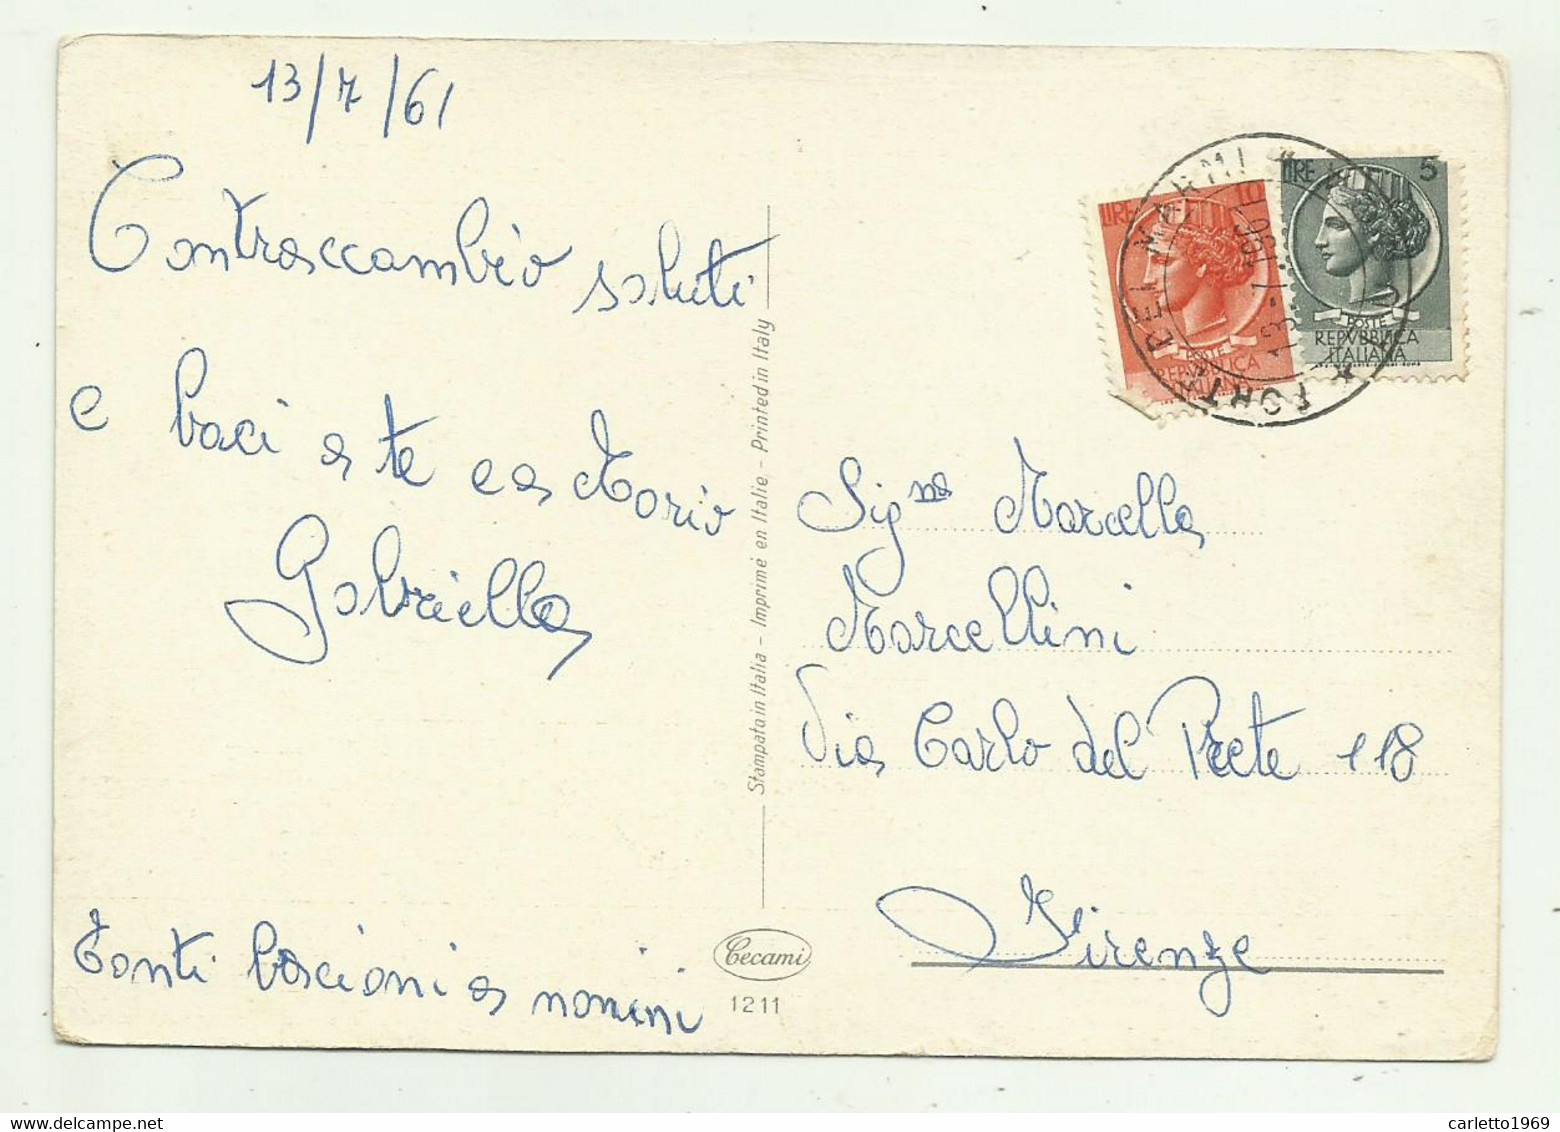 13/7/61
Contraccambio saluti
e baci a te e a Mario
Gabriella
Tanti bacioni a nonini
Stampato in Italia - Imprimé en Italie - Printed in Italy
Cecami
1211
LIRE 10
POSTE
REPVBBLICA
ITALIANA
LIRE 5
POSTE
REPVBBLICA
ITALIANA
FORTE DEI MARMI
13.-7.1961
Sig.na Marcella
Marcellini
Via Carlo del Prete 118
Firenze
carletto1969